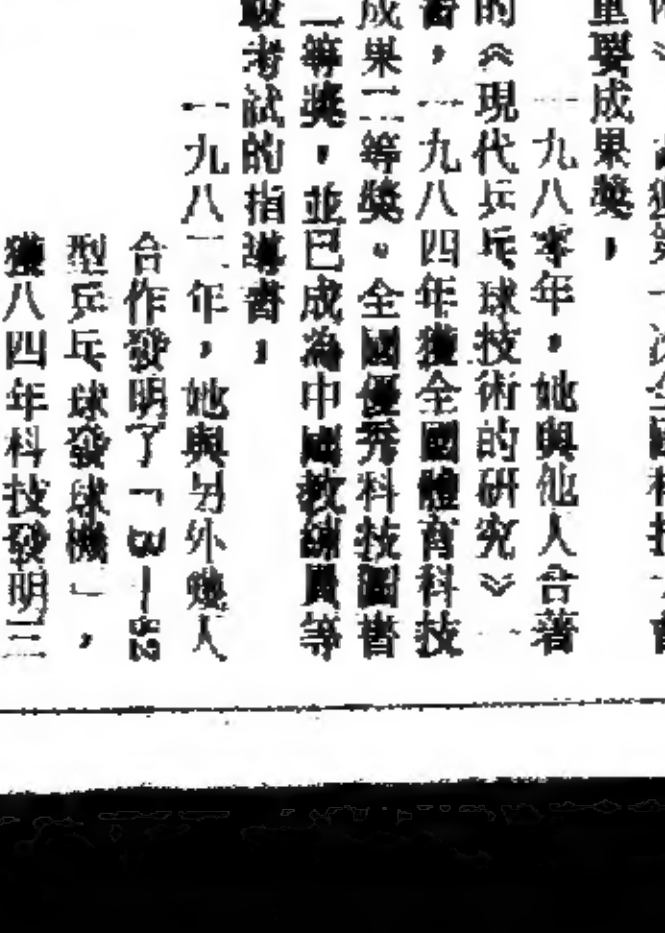 重要成果獎，
一九八零年，她與他人合著
的《現代乒乓球技術的研究》一
書，一九八四年獲全國體育科技
成果二等獎。全國優秀科技圖書
二等獎，並已成為中國教練員等
級考試的指導書，
一九八二年，她與另外幾人
合作發明了「B—82
型乒乓球發球機」，
獲八四年科技發明三